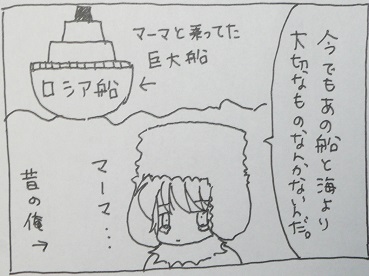 今でもあの船と海より
大切なものなんかないんだ。
マーマと乗ってた
巨大船
←
ロシア船
マーマ…
昔の俺→